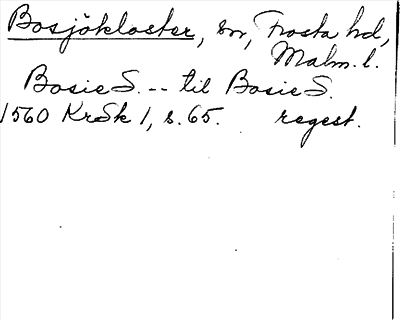 Bosjökloster, sn, Frosta hd,
Malm. l.
Bosie S. -- til Bosie S.
1560 KrSk 1, s. 65. regest.